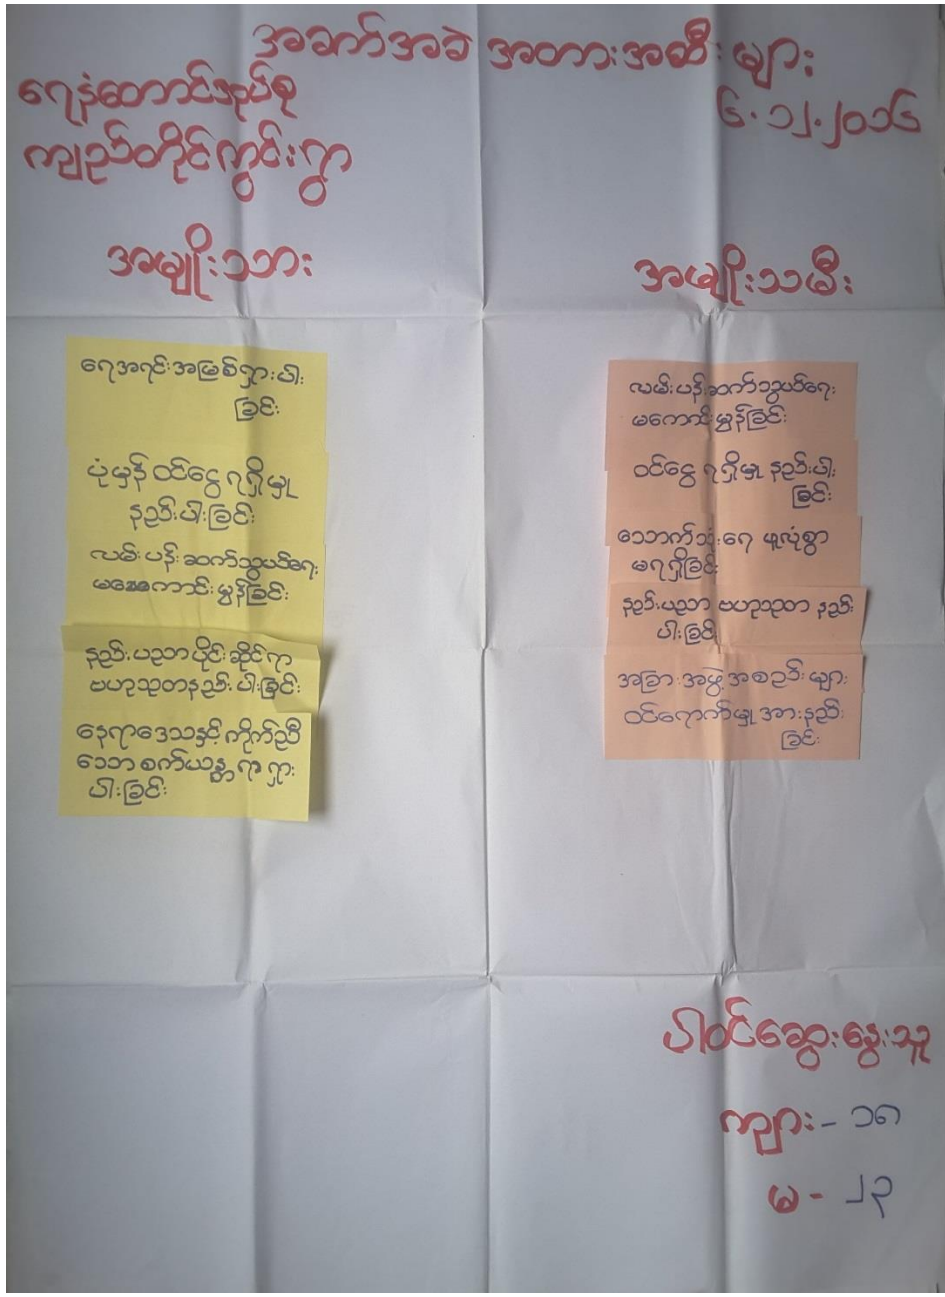 အခက်အခဲ အတားအဆီးများ
ရေနံတောင်အုပ်စု
၆.၁၂.၂၀၁၆
ကျည်တိုင်ကွင်းရွာ
အမျိုးသား
ရေအရင်းအမြစ်ရှားပါး
ခြင်း
ပုံမှန် ဝင်ငွေ ရရှိမှု
နည်းပါးခြင်း
လမ်းပန်းဆက်သွယ်ရေး
မကောင်းမွန်ခြင်း
နည်းပညာပိုင်းဆိုင်ရာ
ဗဟုသုတနည်းပါးခြင်း
နေရာဒေသနှင့် ကိုက်ညီ
သော စက်ယန္တရာ ရှား
ပါးခြင်း
အမျိုးသမီး
လမ်းပန်းဆက်သွယ်ရေး
မကောင်းမွန်ခြင်း
ဝင်ငွေ ရရှိမှု နည်းပါး
ခြင်း
သောက်သုံးရေ ဖူလုံစွာ
မရရှိခြင်း
နည်းပညာ ဗဟုသုတ နည်း
ပါးခြင်း
အခြားအဖွဲ့အစည်းများ
ဝင်ရောက်မှု အားနည်း
ခြင်း
ပါဝင်ဆွေးနွေးသူ
ကျား - ၁၈
မ - ၂၃